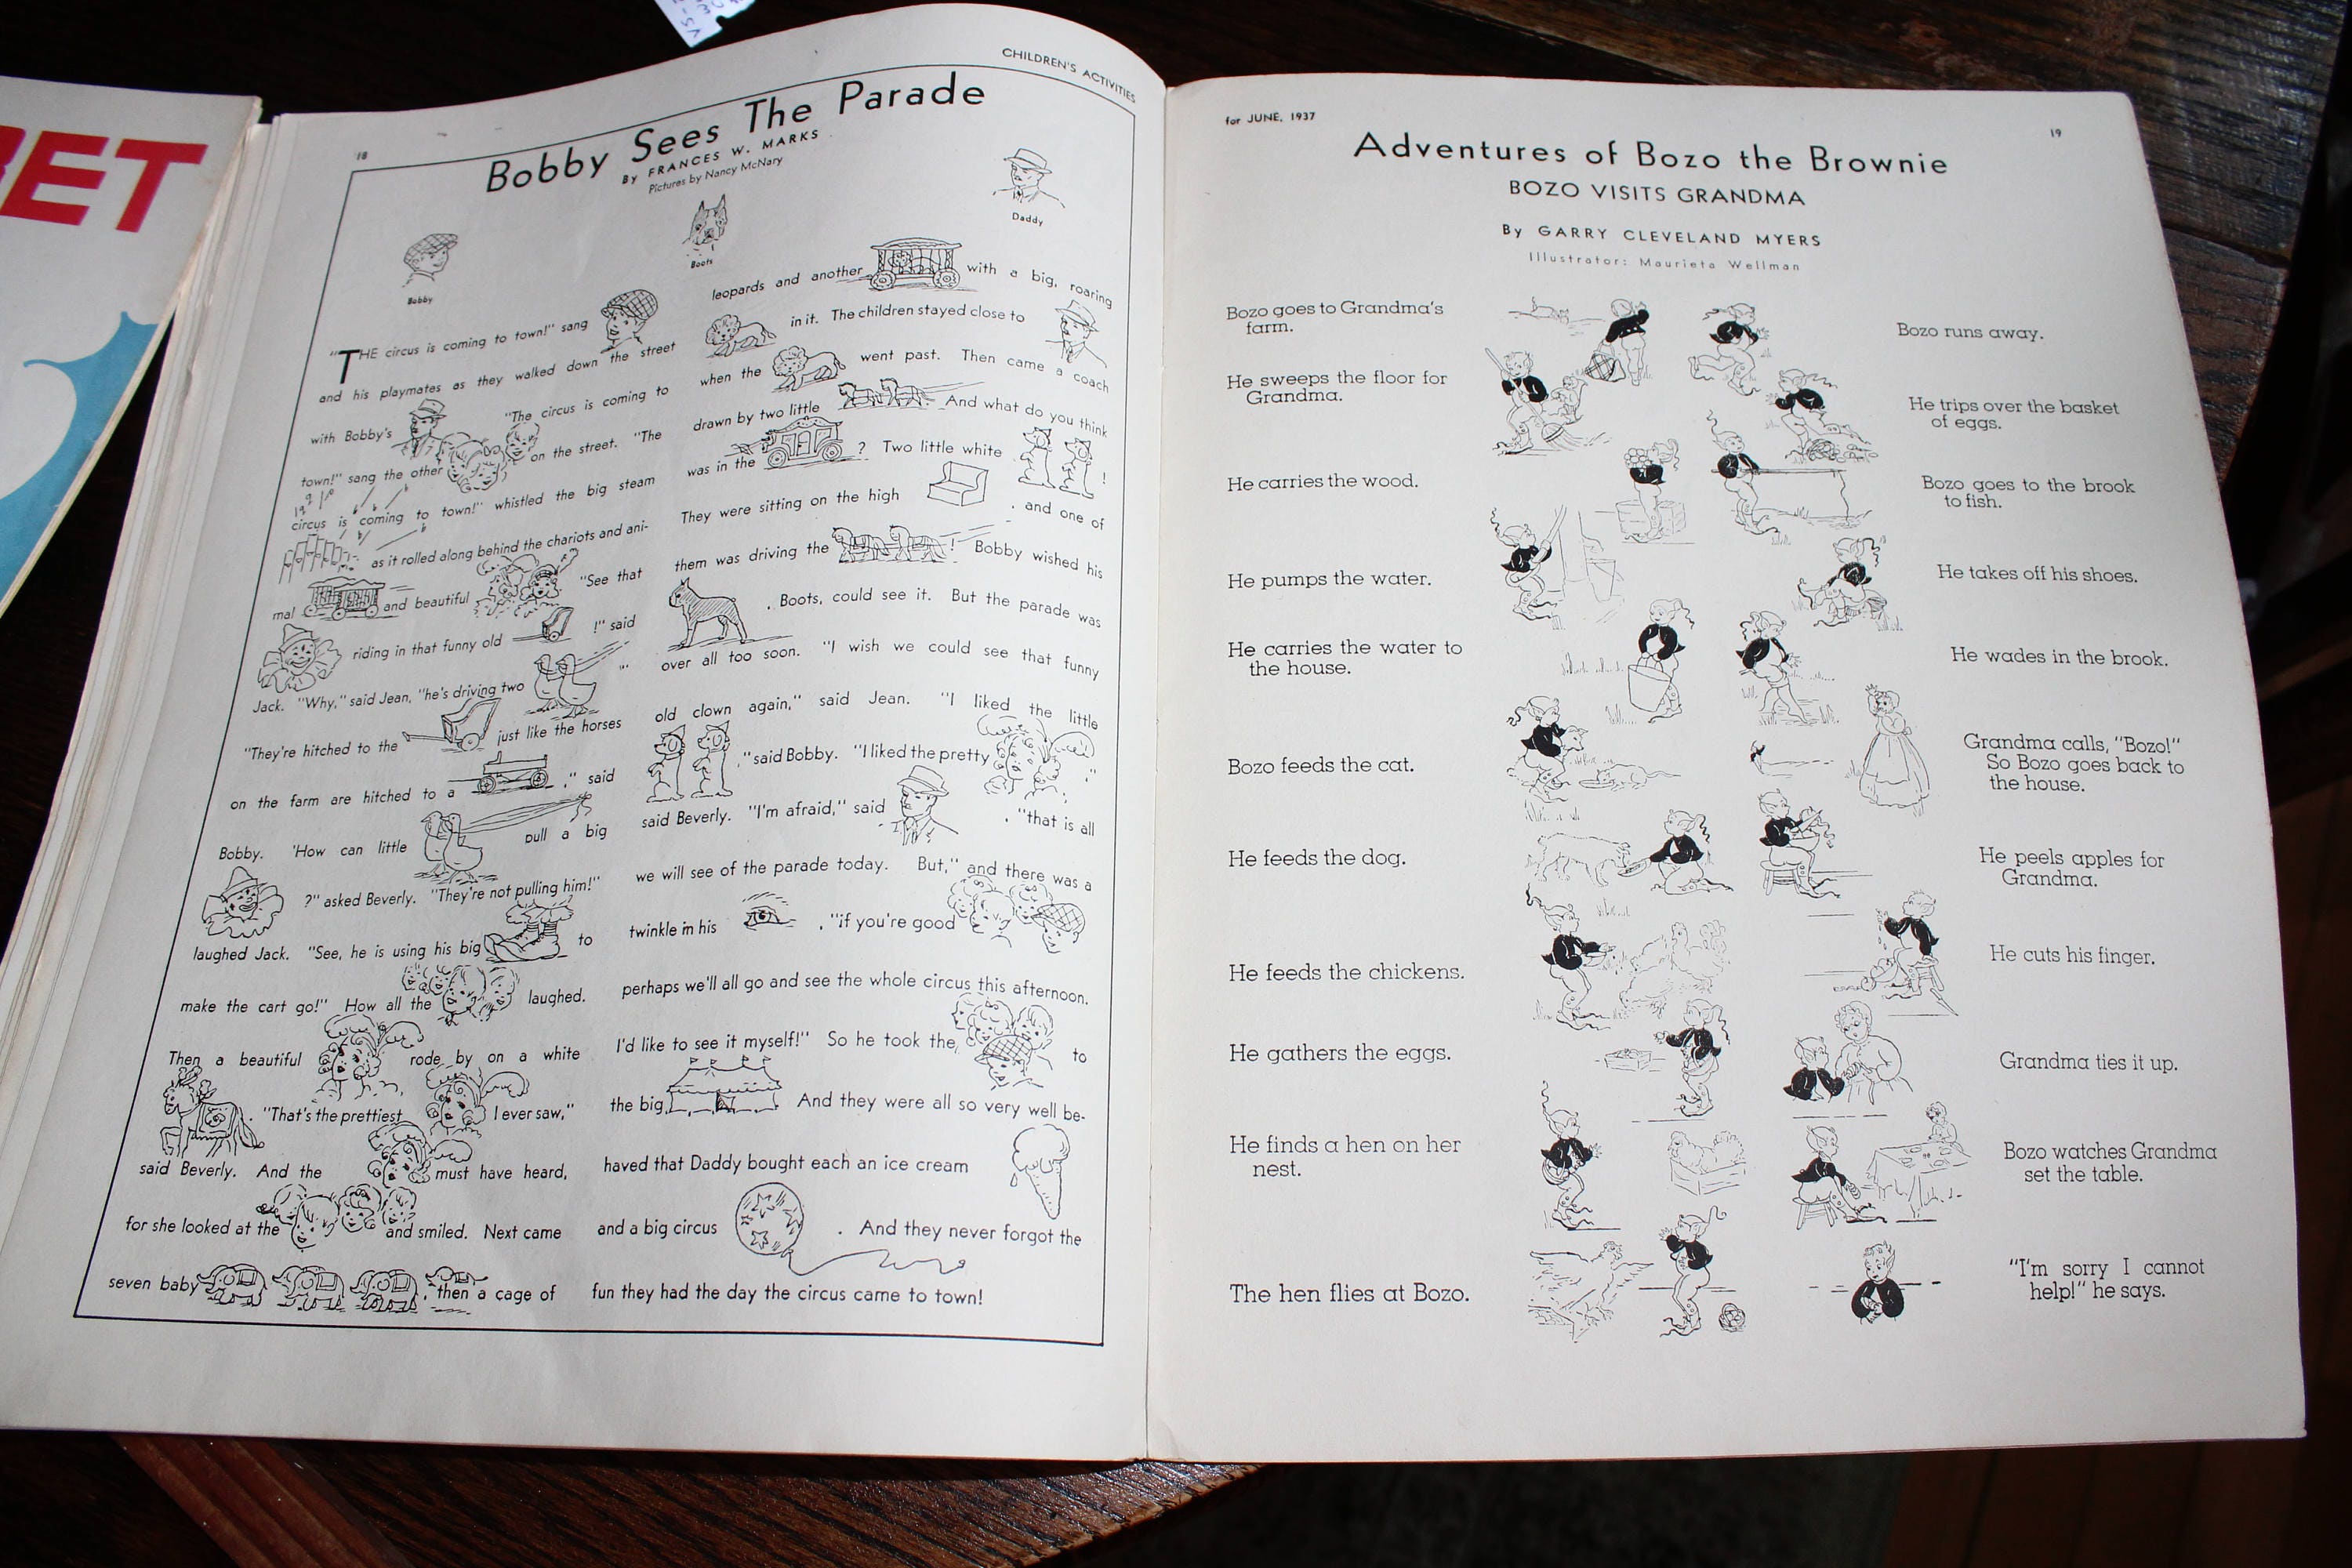 BET
CHILDREN'S ACTIVITIES
18
Bobby Sees The Parade
By FRANCES W. MARKS
Pictures by Nancy McNary
Bobby
Boots
Daddy
"THE circus is coming to town!" sang
and his playmates as they walked down the street
with Bobby's "The circus is coming to
town!" sang the other on the street. "The
circus is coming to town!" whistled the big steam
as it rolled along behind the chariots and ani-
mal and beautiful "See that
riding in that funny old !" said
Jack. "Why," said Jean, "he's driving two
"They're hitched to the just like the horses
on the farm are hitched to a ," said
Bobby. 'How can little pull a big
?" asked Beverly. "They're not pulling him!"
laughed Jack. "See, he is using his big to
make the cart go!" How all the laughed.
Then a beautiful rode by on a white
. "That's the prettiest I ever saw,"
said Beverly. And the must have heard,
for she looked at the and smiled. Next came
seven baby , then a cage of
leopards and another with a big, roaring
in it. The children stayed close to
when the went past. Then came a coach
drawn by two little . And what do you think
was in the ? Two little white !
They were sitting on the high , and one of
them was driving the ! Bobby wished his
, Boots, could see it. But the parade was
over all too soon. "I wish we could see that funny
old clown again," said Jean. "I liked the little
," said Bobby. "I liked the pretty ,"
said Beverly. "I'm afraid," said , "that is all
we will see of the parade today. But," and there was a
twinkle in his , "if you're good
perhaps we'll all go and see the whole circus this afternoon.
I'd like to see it myself!" So he took the to
the big . And they were all so very well be-
haved that Daddy bought each an ice cream
and a big circus . And they never forgot the
fun they had the day the circus came to town!
for JUNE, 1937
19
Adventures of Bozo the Brownie
BOZO VISITS GRANDMA
By GARRY CLEVELAND MYERS
Illustrator: Maurieta Wellman
Bozo goes to Grandma's
farm.
He sweeps the floor for
Grandma.
He carries the wood.
He pumps the water.
He carries the water to
the house.
Bozo feeds the cat.
He feeds the dog.
He feeds the chickens.
He gathers the eggs.
He finds a hen on her
nest.
The hen flies at Bozo.
Bozo runs away.
He trips over the basket
of eggs.
Bozo goes to the brook
to fish.
He takes off his shoes.
He wades in the brook.
Grandma calls, "Bozo!"
So Bozo goes back to
the house.
He peels apples for
Grandma.
He cuts his finger.
Grandma ties it up.
Bozo watches Grandma
set the table.
"I'm sorry I cannot
help!" he says.